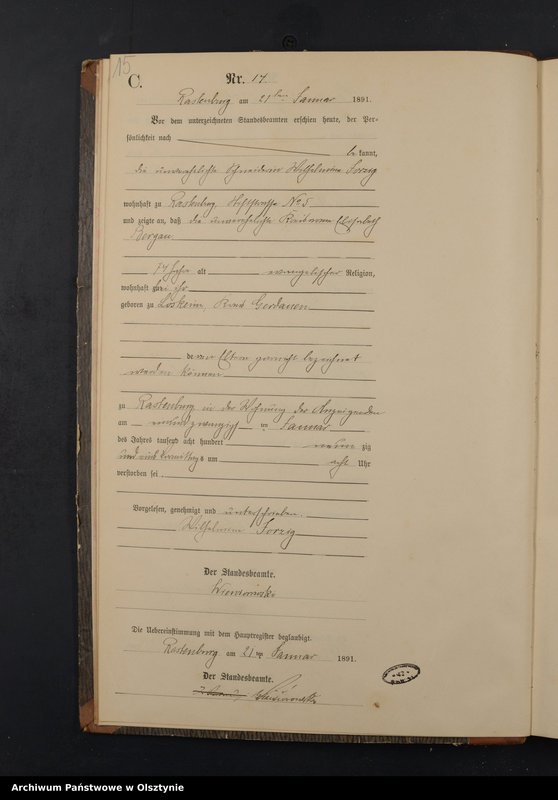 15
C.
Nr. 17
Rastenburg am 21ten Januar 1891.
Vor dem unterzeichneten Standesbeamten erschien heute, der Per-
sönlichkeit nach
be kannt,
die unverehelichte Schneiderin Wilhelmine
wohnhaft zu Rastenburg No 5
und zeigte an, daß die unverehelichte
Bergau
alt evangelischer Religion,
wohnhaft bei ihr
geboren zu Loskeim, Kreis Gerdauen
deren Eltern nicht bezeichnet
werden können
zu Rastenburg in der Wohnung der Anzeigenden
am einundzwanzigsten Januar
des Jahres tausend acht hundert neun zig
und eins Vormittags um acht Uhr
verstorben sei
Vorgelesen, genehmigt und unterschrieben.
Wilhelmine
Der Standesbeamte.
Die Uebereinstimmung mit dem Hauptregister beglaubigt.
Rastenburg am 21ten Januar 1891.
Der Standesbeamte.
Archiwum Państwowe w Olsztynie